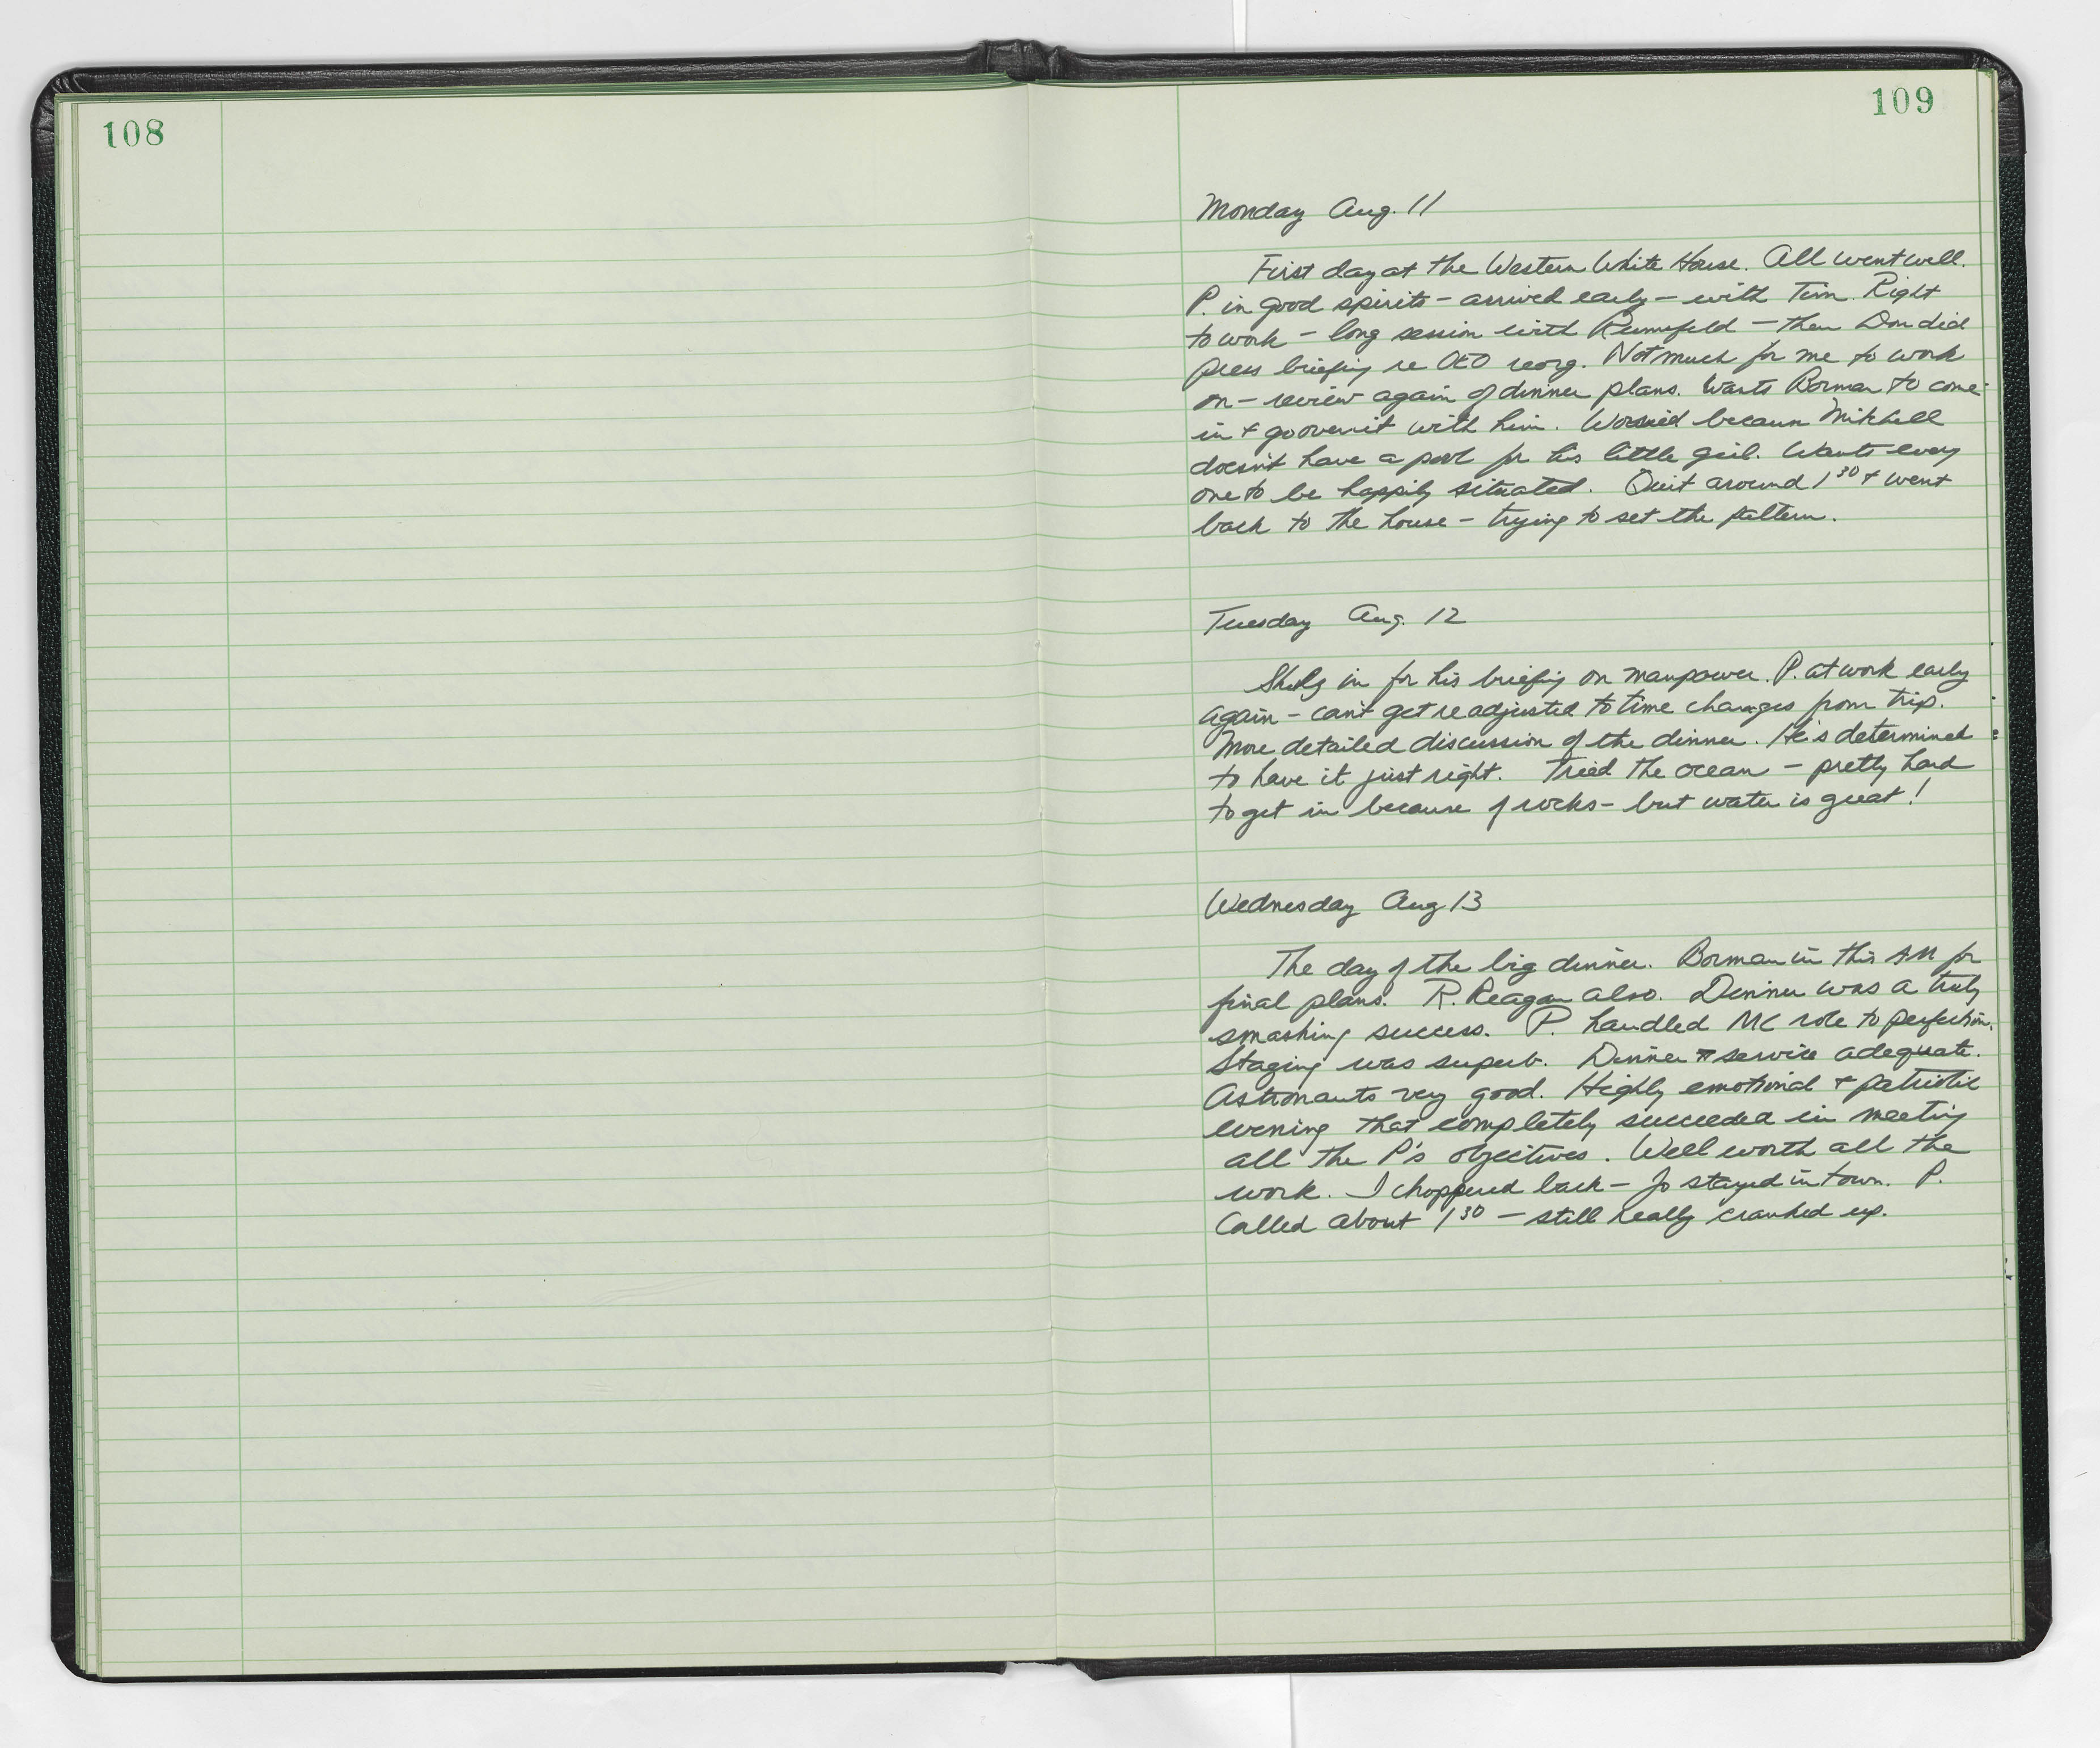 108
109
Monday Aug. 11
First day at the Western White House. All went well.
P. in good spirits – arrived early – with Tim. Right
to work – long session with Rumsfeld – then Don did
press briefing re OEO reorg. Not much for me to work
on – review again of dinner plans. Wants Borman to come
in + go over it with him. Worried because Mitchell
doesn't have a pool for his little girl. Wants every
one to be happily situated. Quit around 1³⁰ + went
back to the house – trying to set the pattern.
Tuesday Aug. 12
Shultz in for his briefing on manpower. P. at work early
again – can't get readjusted to time changes from trip.
More detailed discussion of the dinner. He's determined
to have it just right. Tried the ocean – pretty hard
to get in because of rocks – but water is great!
Wednesday Aug 13
The day of the big dinner. Borman in this AM for
final plans. R. Reagan also. Dinner was a truly
smashing success. P. handled MC role to perfection.
Staging was superb. Dinner + service adequate.
Astronauts very good. Highly emotional + patriotic
evening that completely succeeded in meeting
all the P's objectives. Well worth all the
work. I choppered back – Jo stayed in town. P.
called about 1³⁰ – still really cranked up.